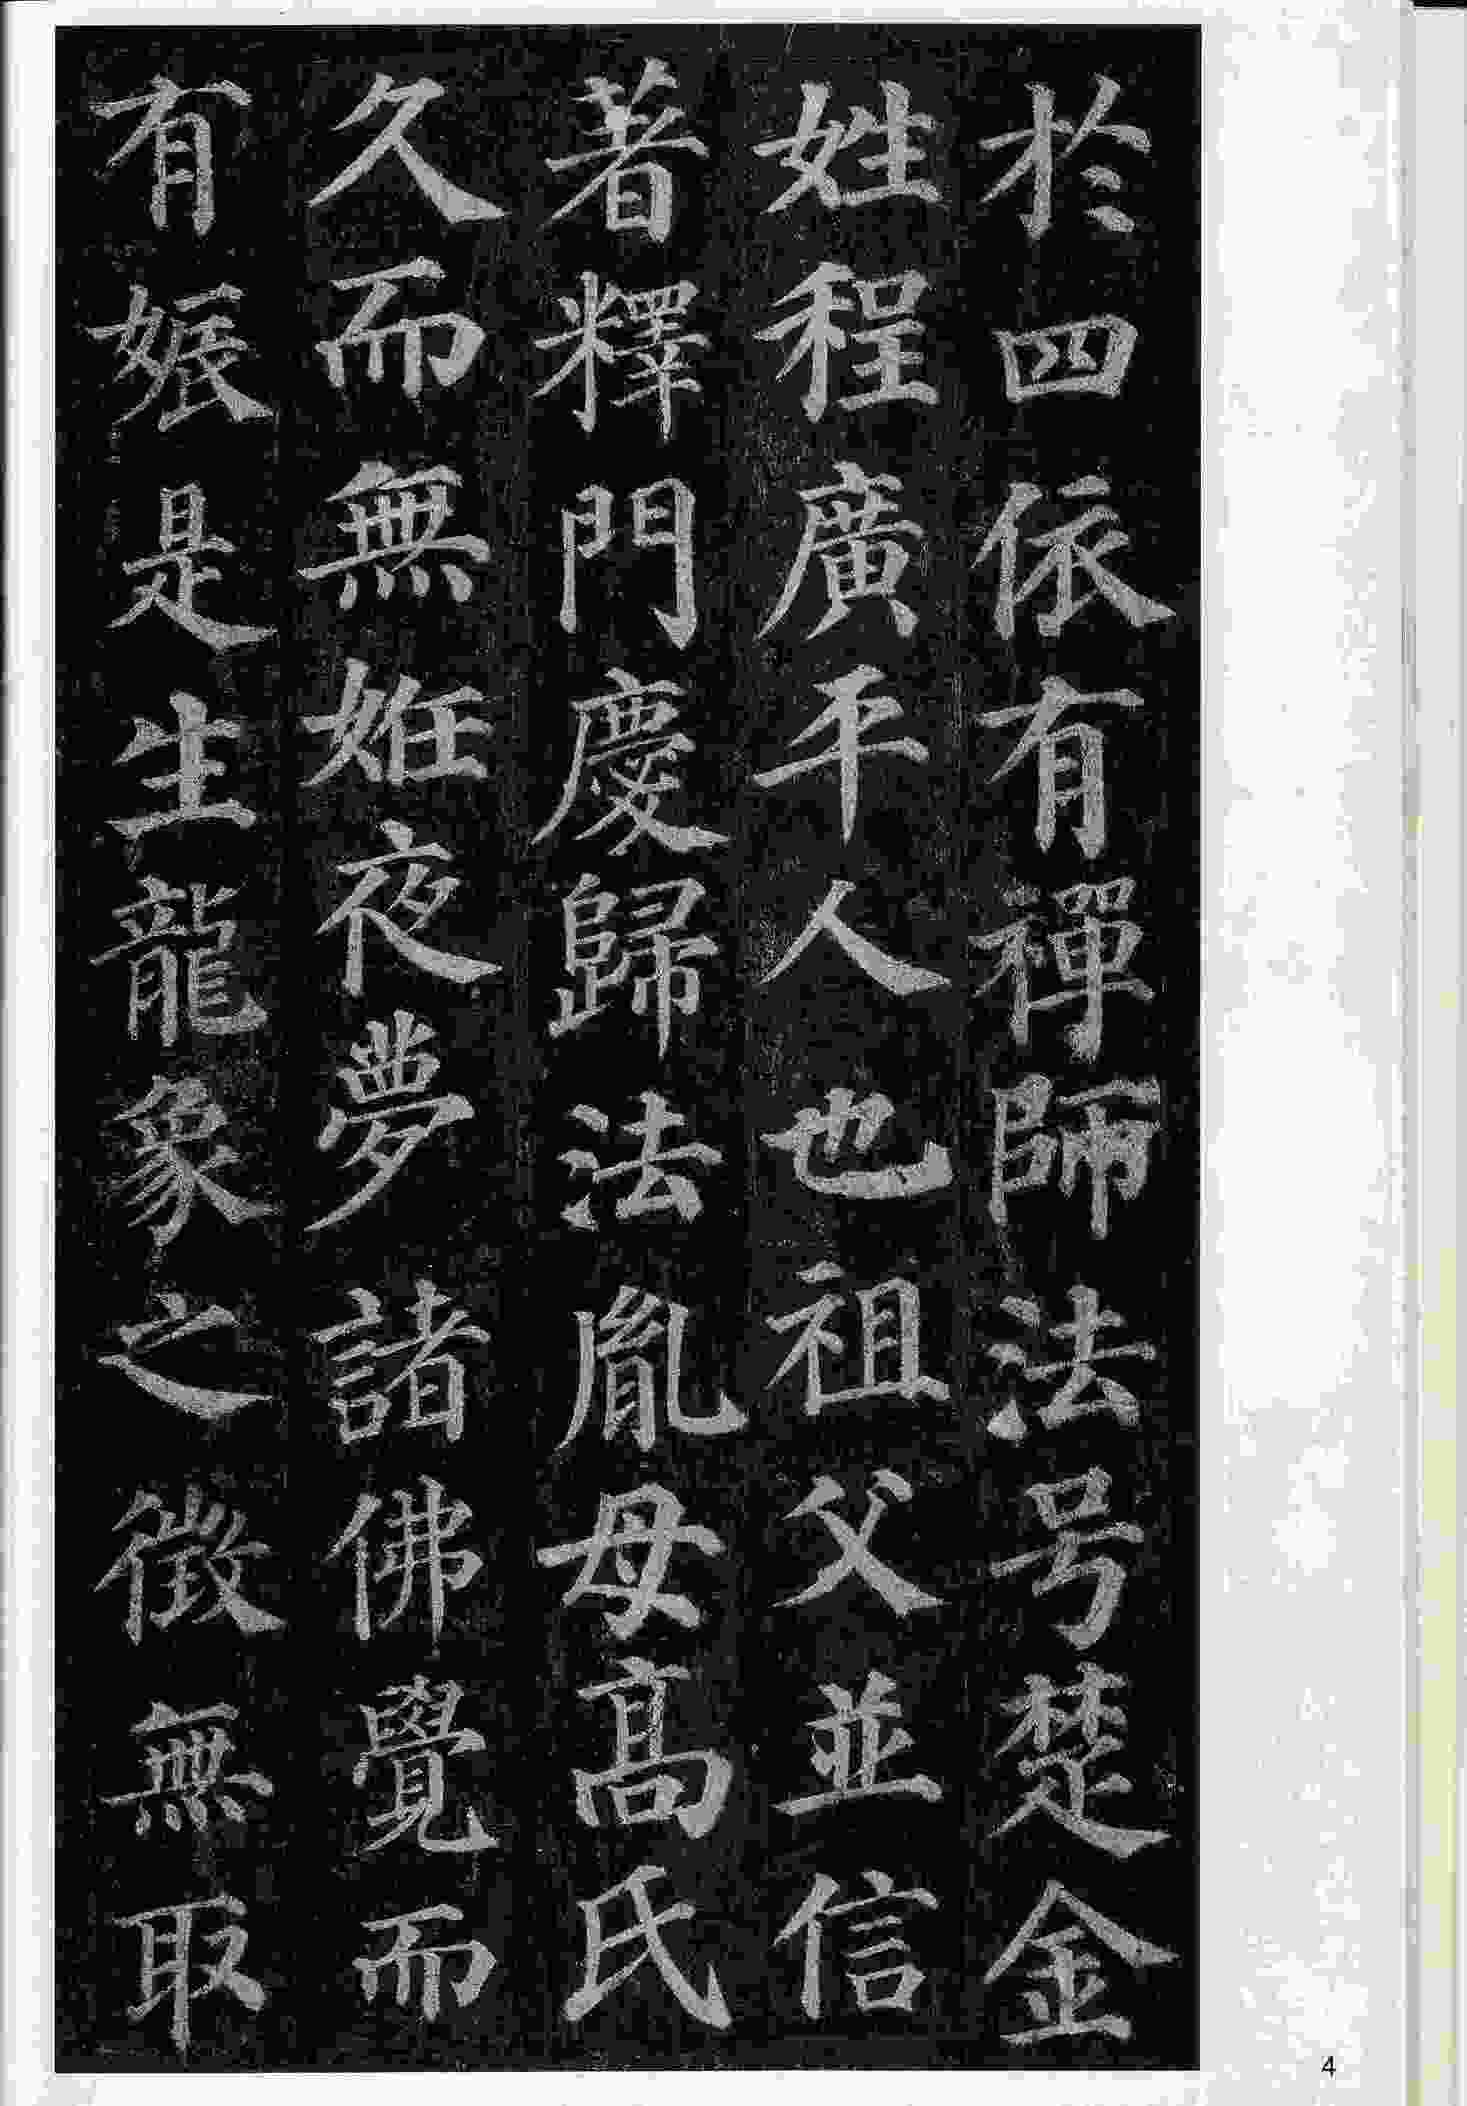 於四依有禪師法号楚金
姓程廣平人也祖父並信
著釋門慶歸法胤母高氏
久而無姙夜夢諸佛覺而
有娠是生龍象之徵無取
4